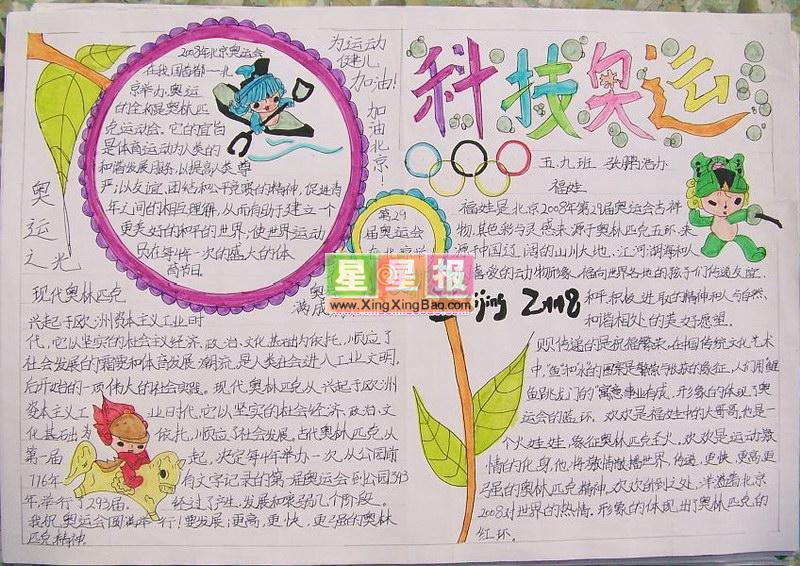 2008年北京奥运会
在我国首都——北
京举办,奥运
的全称是奥林匹
克运动会,它的宣旨
是体育运动为人类的
和谐发展服务,以提高人类尊
严;以友谊,团结和公平竞赛的精神,促进青
年之间的相互理解,从而有助于建立一个
更美好的和平的世界;使世界运动
员在每4年一次的盛大的体
育节日.
为运动
健儿
加油!
加油北京!
奥运之光
科技奥运
五九班 张鹏浩办
福娃
福娃是北京2008年第29届奥运会吉祥
物,其色彩与灵感来源于奥林匹克五环,来
源于中国辽阔的山川大地、江河湖海和人
喜爱的动物形象,福向世界各地的孩子们传递友谊、
和平,积极进取的精神和人与自然
和谐相处的美好愿望.
第29
届奥运会
在北京
星星报
www.XingXingBao.com
奥
满成
现代奥林匹克
兴起于欧洲资本主义工业时
代,它以坚实的社会主义经济、政治、文化基础为依托,顺应了
社会发展的需要和体育发展潮流,是人类社会进入工业文明,
后开始的一项伟大的社会实践。现代奥林匹克从兴起于欧洲
资本主义工业时代,它以坚实的社会经济,政治,文
化基础为依托,顺应了社会发展。古代奥林匹克从
第一届起,决定每4年举办一次,从公园前
776年有文字记录的第一届奥运会到公园393
年,举行了293届.经过了产生,发展和衰弱几个阶段。
我祝奥运会圆满举行!要发展:更高,更快,更强的奥林
匹克精神.
贝贝传递的是祝福繁荣,在中国传统文化艺术
中,鱼和水的图案是繁荣与收获的象征,人们用鲤
鱼跳龙门的寓意事业有成,形象的体现了奥
运会的蓝环.欢欢是福娃中的大哥哥,也是一
个火娃娃,象征奥林匹克圣火,欢欢是运动激
情的化身,他将激情散播世界,传递,更快,更高,更
强的奥林匹克精神,欢欢所到之处,洋溢着北京
2008对世界的热情,形象的体现出了奥林匹克的
红环.